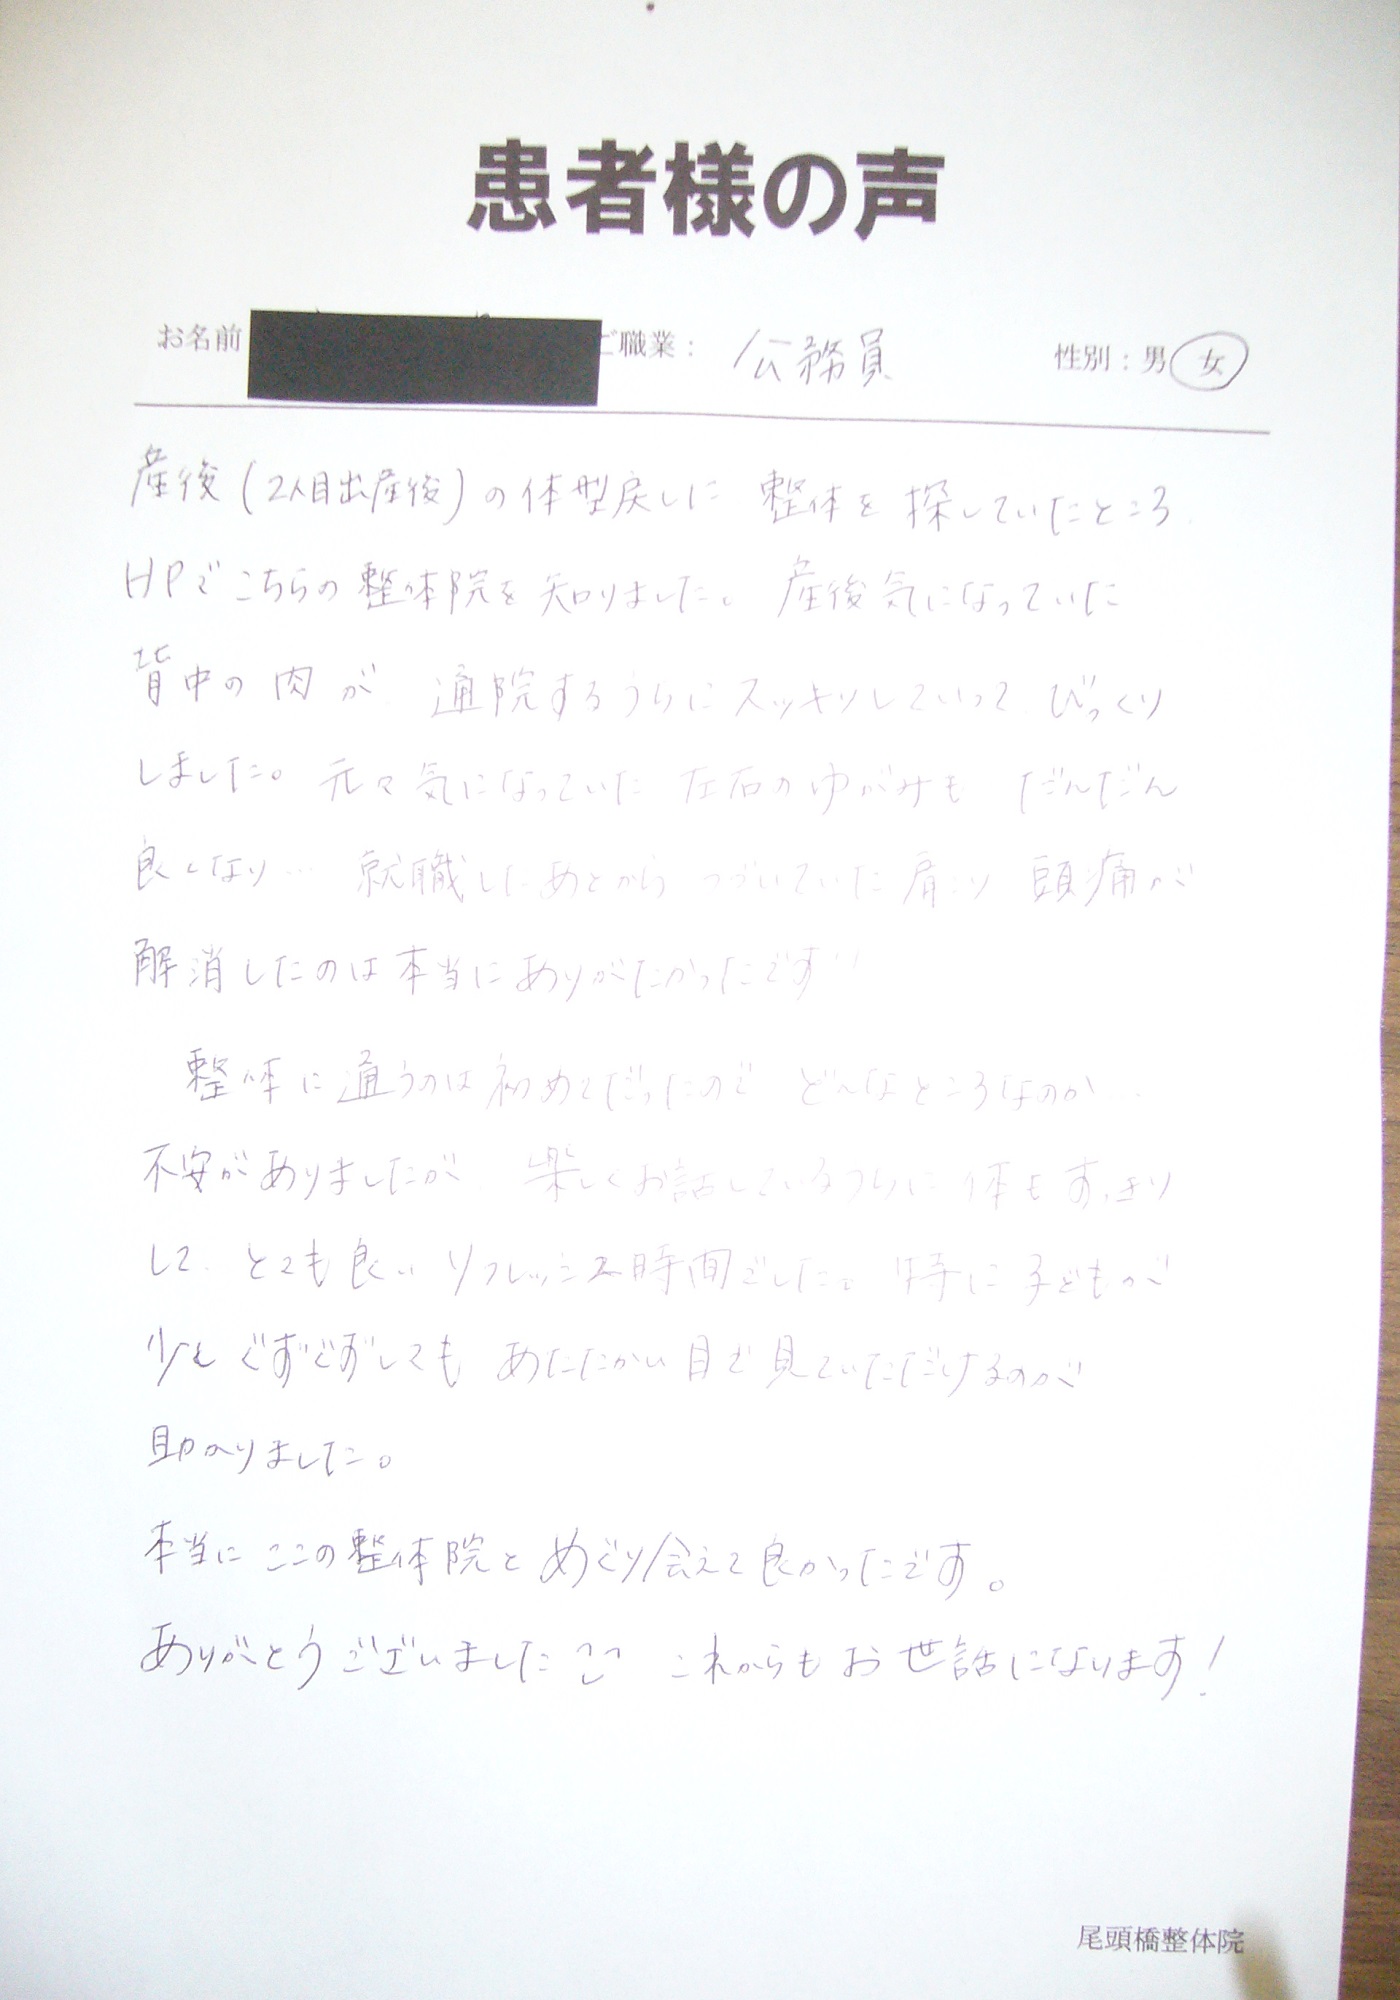 患者様の声
お名前
ご職業： 公務員
性別：男 女
産後(2人目出産後)の体型戻しに 整体を探していたところ
HPでこちらの整体院を知りました。産後気になっていた
背中の肉が 通院するうちにスッキリしていって びっくり
しました。元々気になっていた 左右のゆがみも だんだん
良くなり… 就職したあとから つづいていた肩こり 頭痛が
解消したのは本当にありがたかったです!!
整体に通うのは初めてだったので どんなところなのか…
不安がありましたが、楽しくお話しているうちに 体もすっきり
して、とても良い リフレッシュ時間でした。特に 子どもが
少々 ぐずぐずしても あたたかい目で見ていただけるのが
助かりました。
本当に ここの整体院と めぐり会えて良かったです。
ありがとうございました これからもお世話になります!
尾頭橋整体院